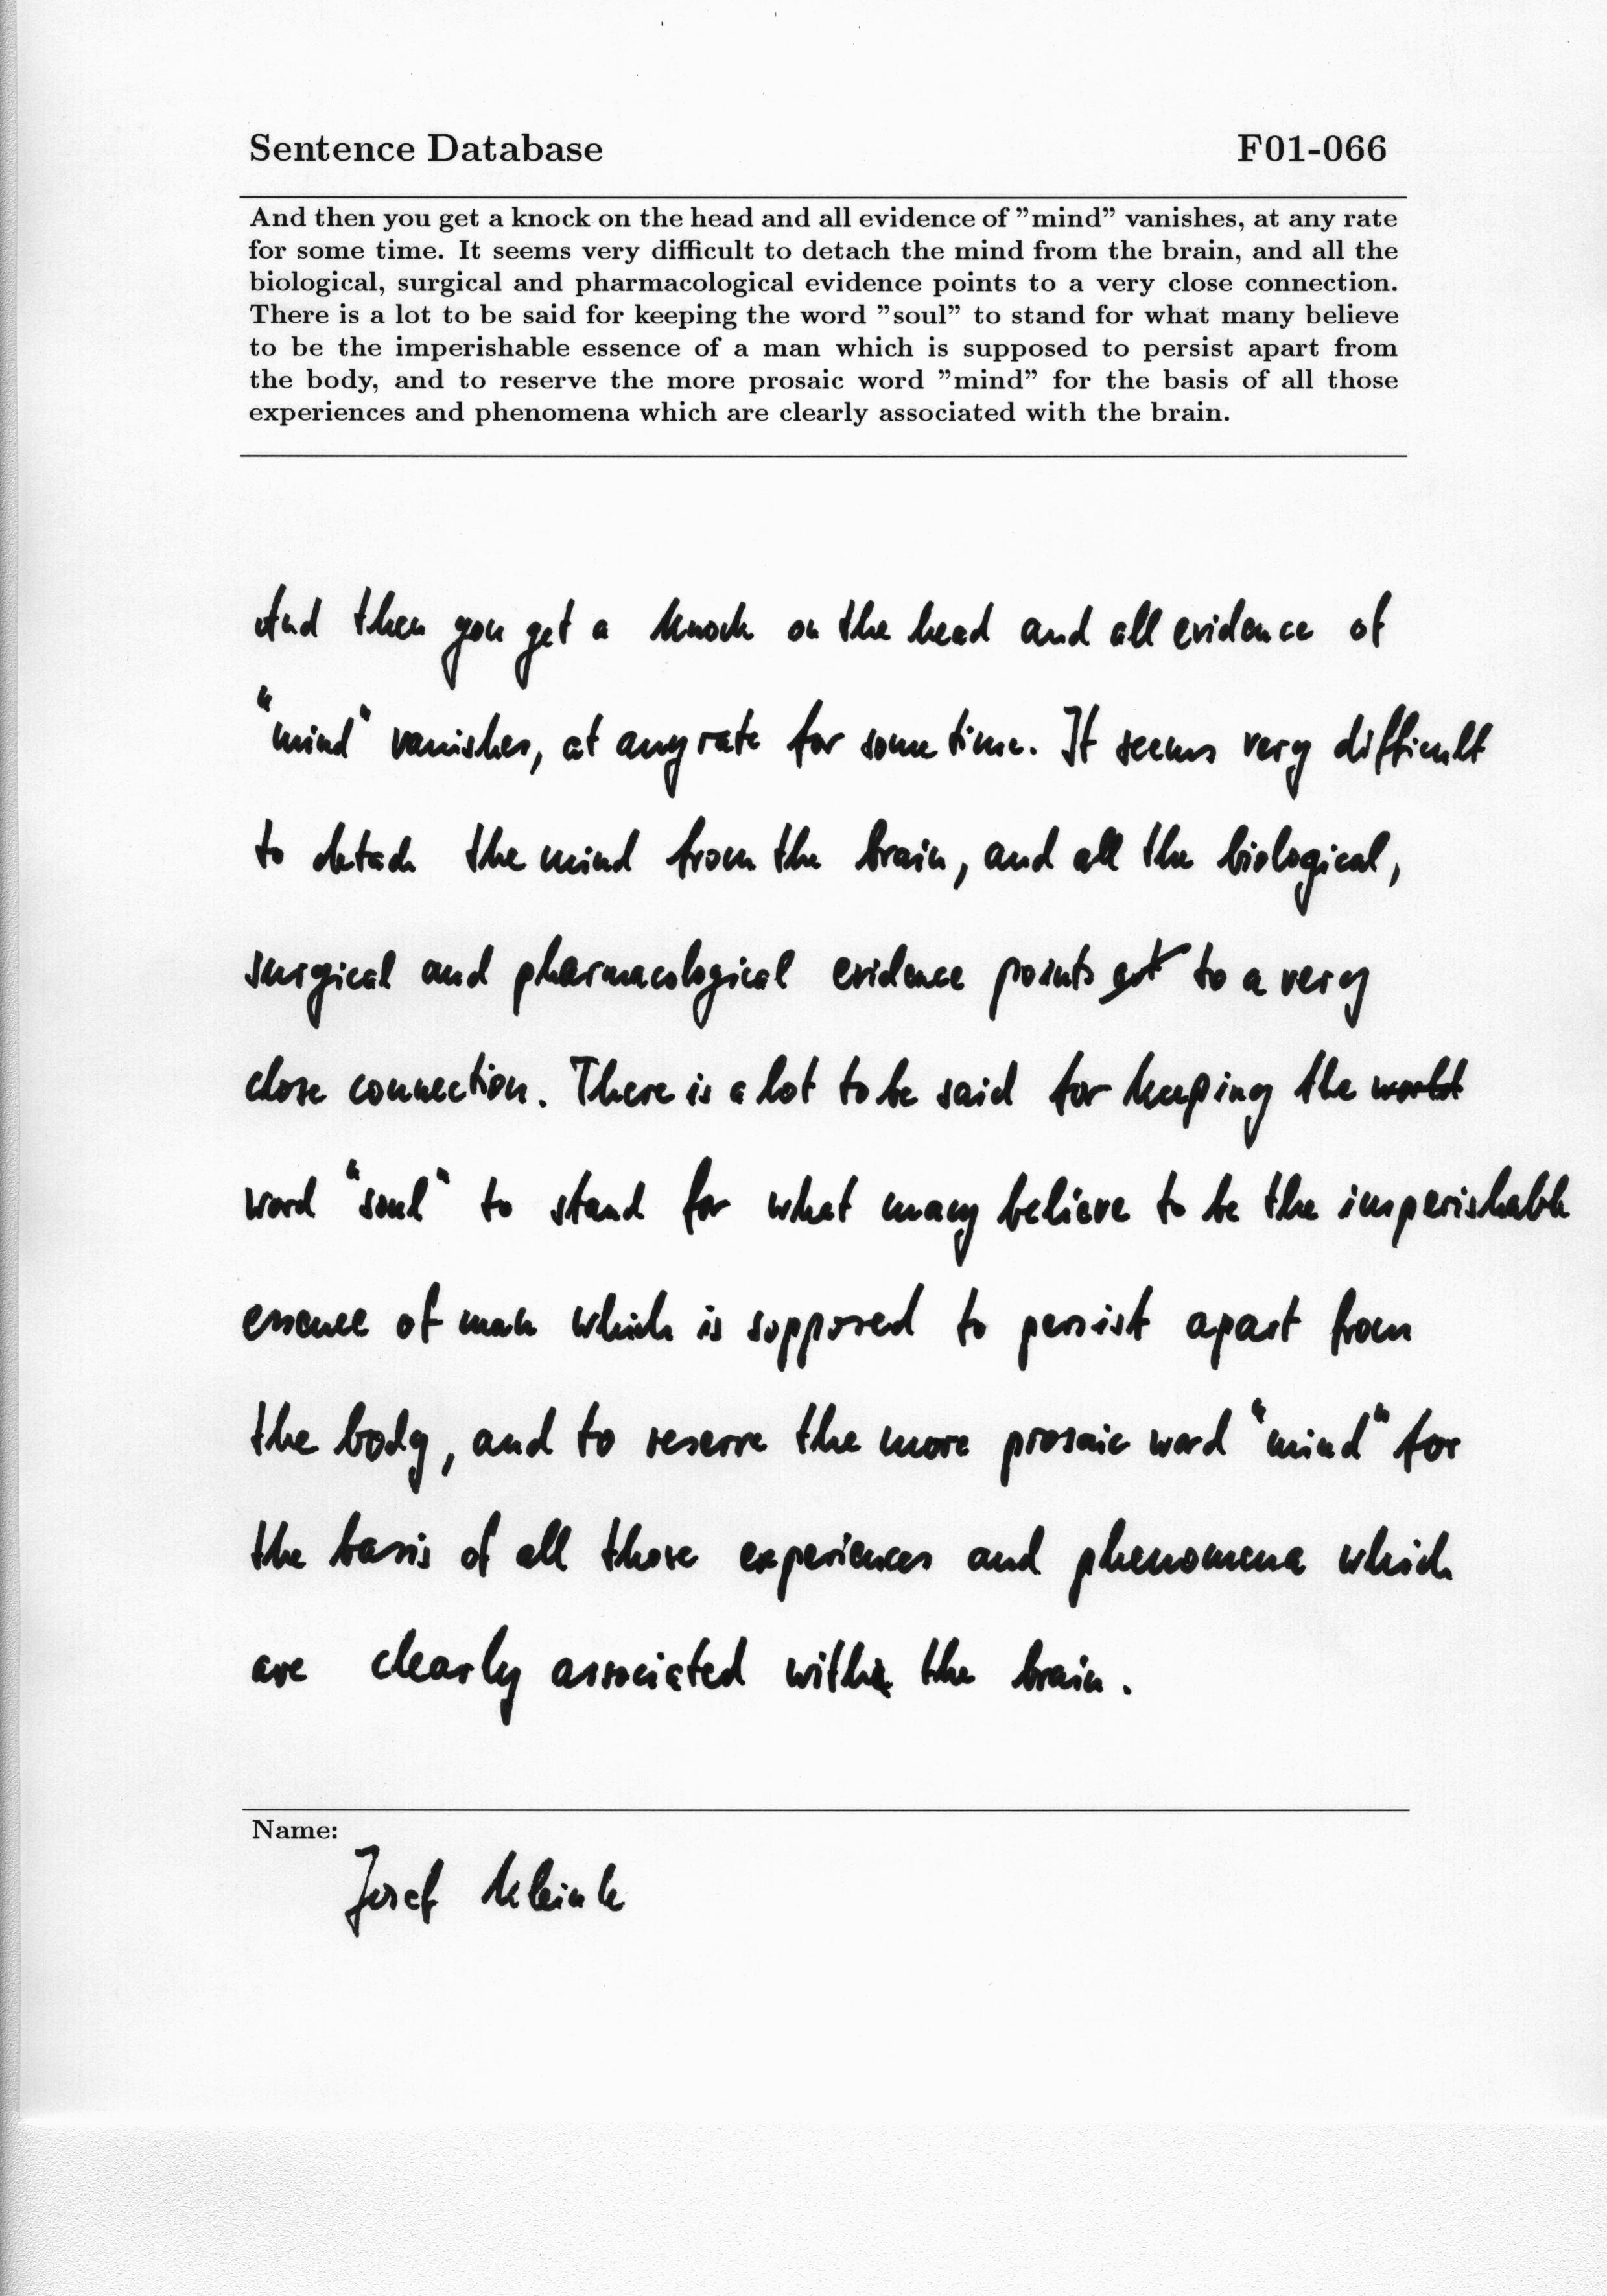 Sentence Database F01-066
And then you get a knock on the head and all evidence of ”mind” vanishes, at any rate
for some time. It seems very difficult to detach the mind from the brain, and all the
biological, surgical and pharmacological evidence points to a very close connection.
There is a lot to be said for keeping the word ”soul” to stand for what many believe
to be the imperishable essence of a man which is supposed to persist apart from
the body, and to reserve the more prosaic word ”mind” for the basis of all those
experiences and phenomena which are clearly associated with the brain.
And then you get a knock on the head and all evidence of
"mind" vanishes, at any rate for some time. It seems very difficult
to detach the mind from the brain, and all the biological,
surgical and pharmacological evidence points to a very
close connection. There is a lot to be said for keeping the
word "soul" to stand for what many believe to be the imperishable
essence of man which is supposed to persist apart from
the body, and to reserve the more prosaic word "mind" for
the basis of all those experiences and phenomena which
are clearly associated with the brain.
Name:
Josef